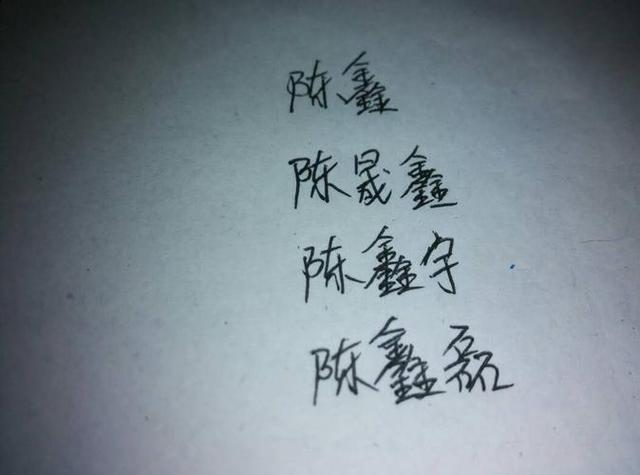 陈鑫
陈晟鑫
陈鑫宇
陈鑫磊